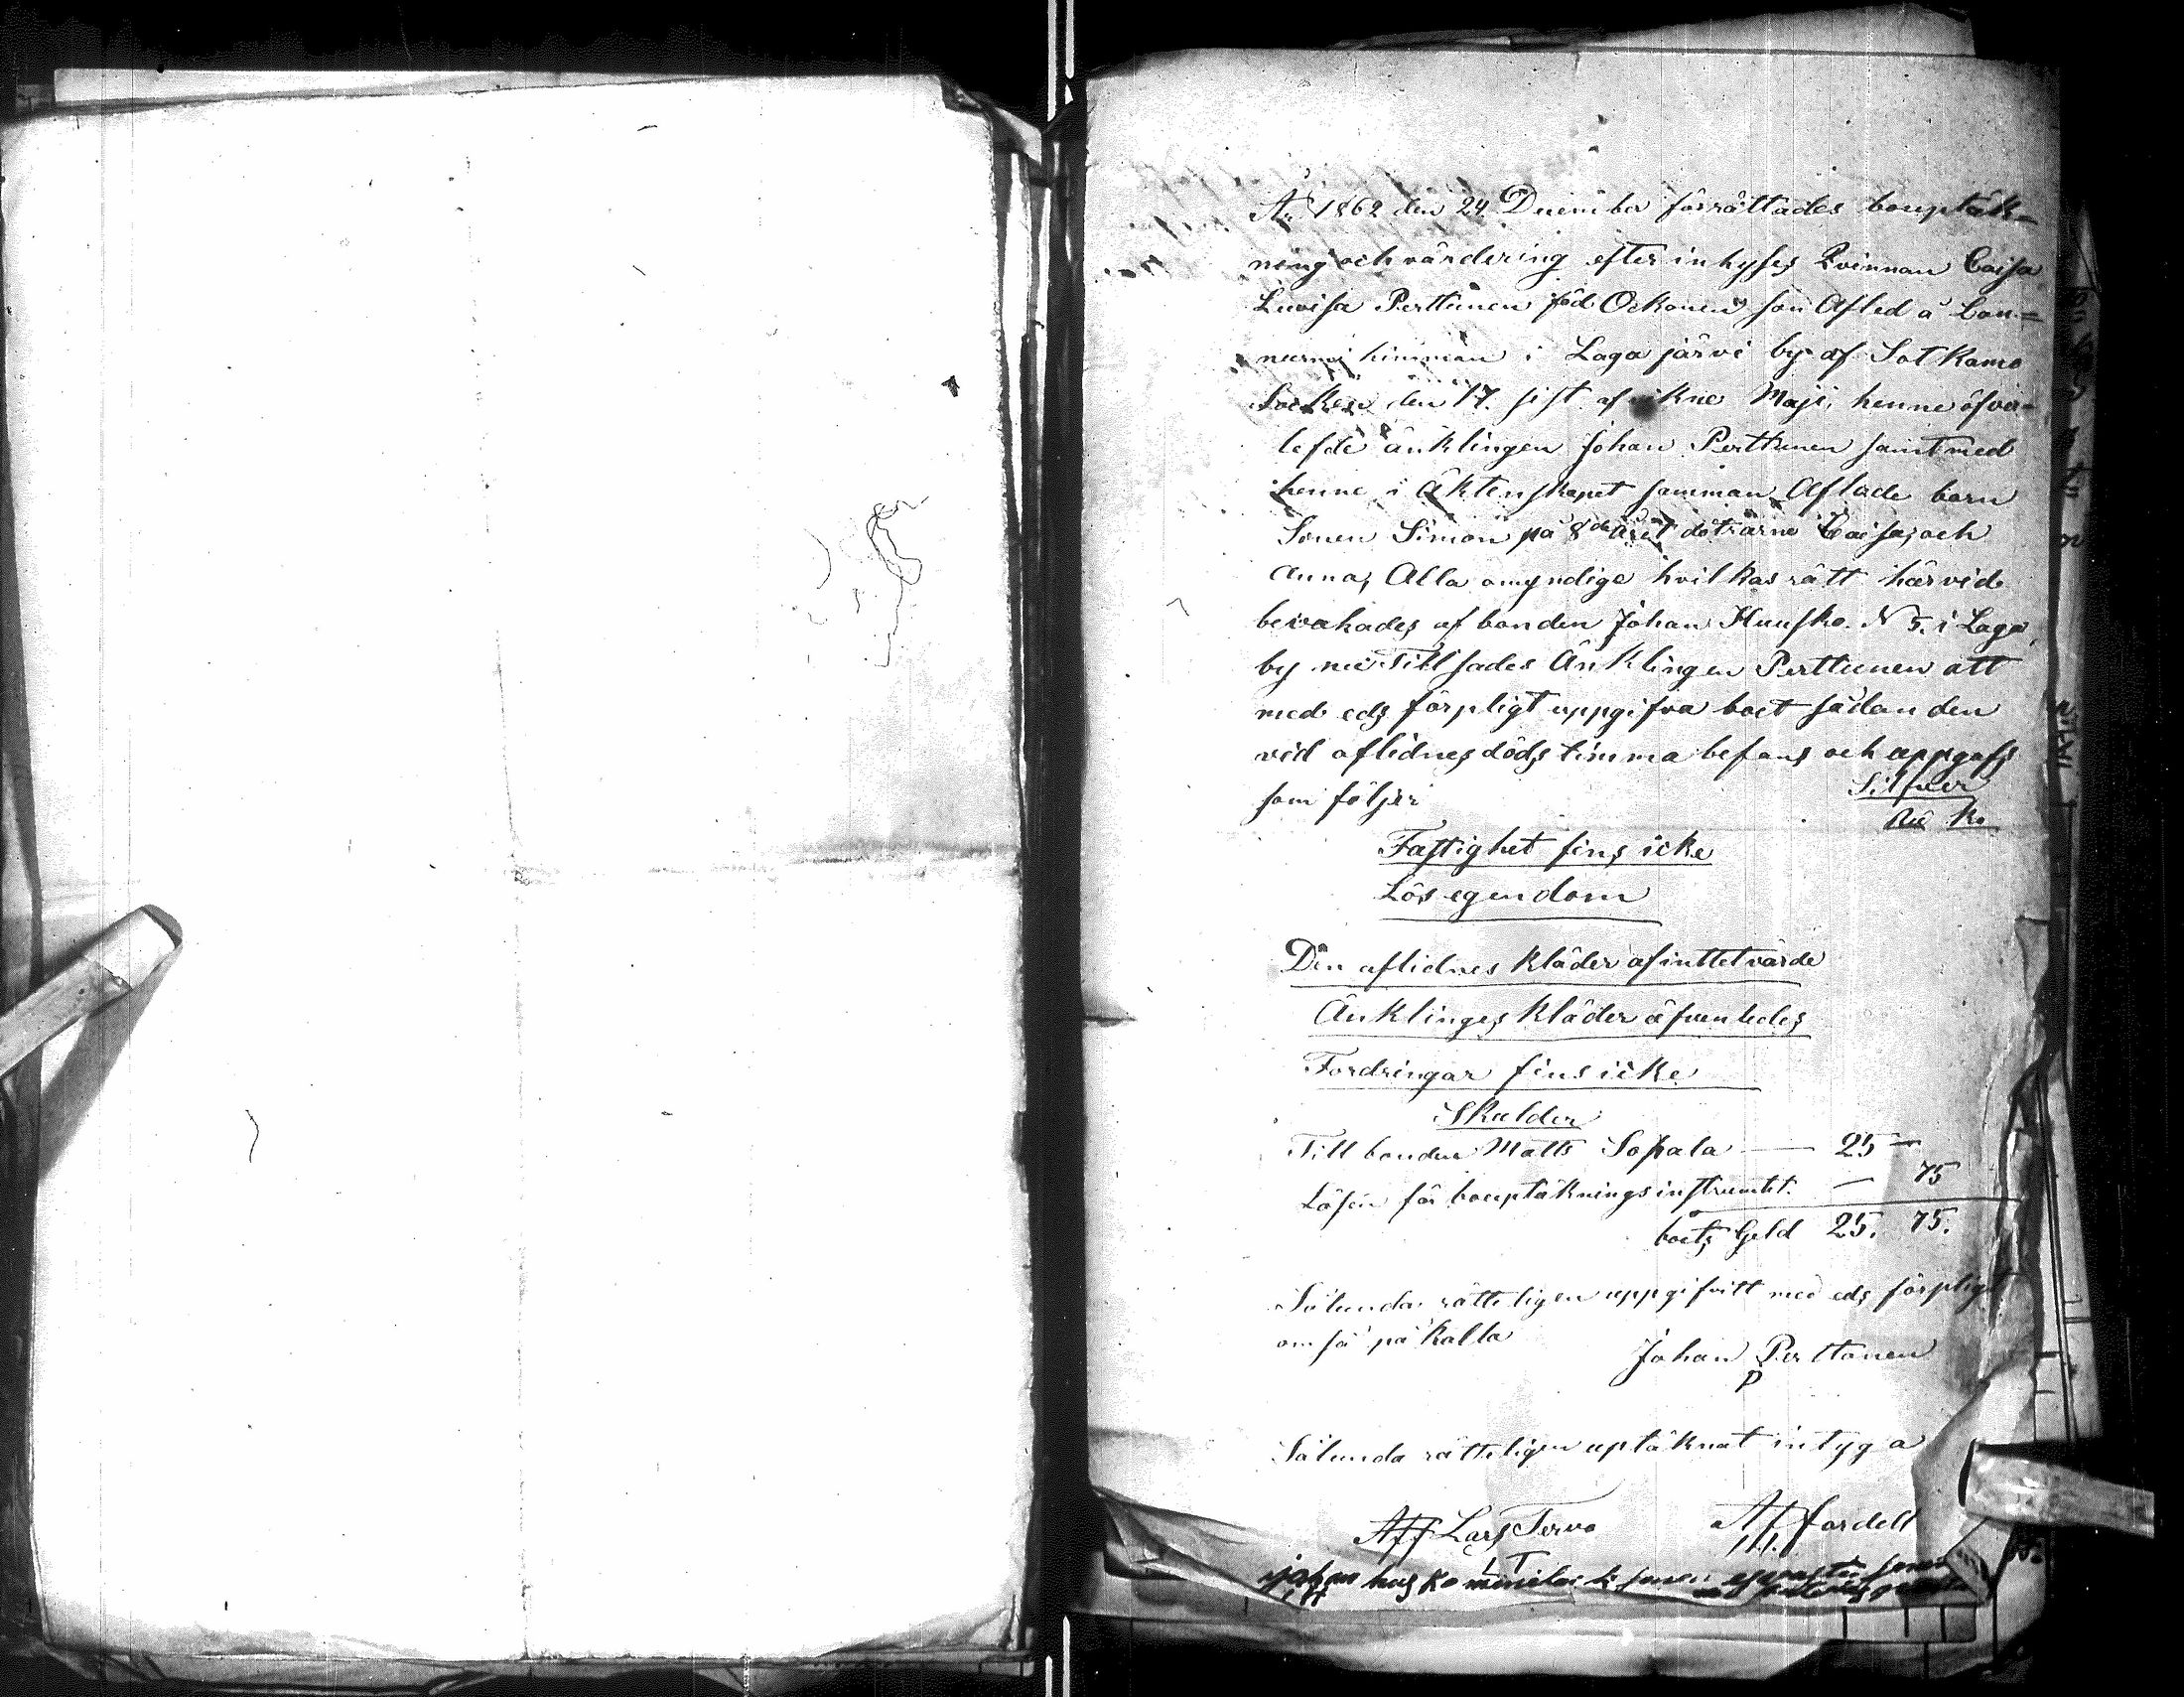 År 1862 den 24 December förrättades bouptäk=
ning och värdering efter inhyses Qvinnan Caisa
Lovisa Perttunen föd Ockonen som Afled å
hemman i Laga järvi by af Sotkamo
Socken den 17. sist afvikne Maji, henne öfver=
lefde änklingen Johan Perttunen samt med
henne i Äktenskapet samman Aflade barn
Sonen Simon på 8de året dötrarne Caisa, och
Anna, Alla omyndige hvilkas rätt härvid
bevakades af bonden Johan Huusko N 5. i Laga
by Tillsades Änklingen Perttunen att
med eds förpligt uppgifva boet sådan den
vid aflidnes döds timma befans och uppgafs
som följer
Silfver
Ru Ko
Fastighet fins icke
Lös egendom
Den aflidnes kläder af intet värde
Änklinges kläder äfvenledes
Fordringar fins icke
Skulder
Till bonden Matts Sopala — 25 —
Lösen för bouptäknings instrumtet. — 75
boets Geld 25. 75.
Sålunda rätteligen uppgifvitt med eds förpligt
om så påkalla
Johan Perttonen
P
Sålunda rätteligen uptäknat intyga
Aff Lars Tervo
L T
johan husko